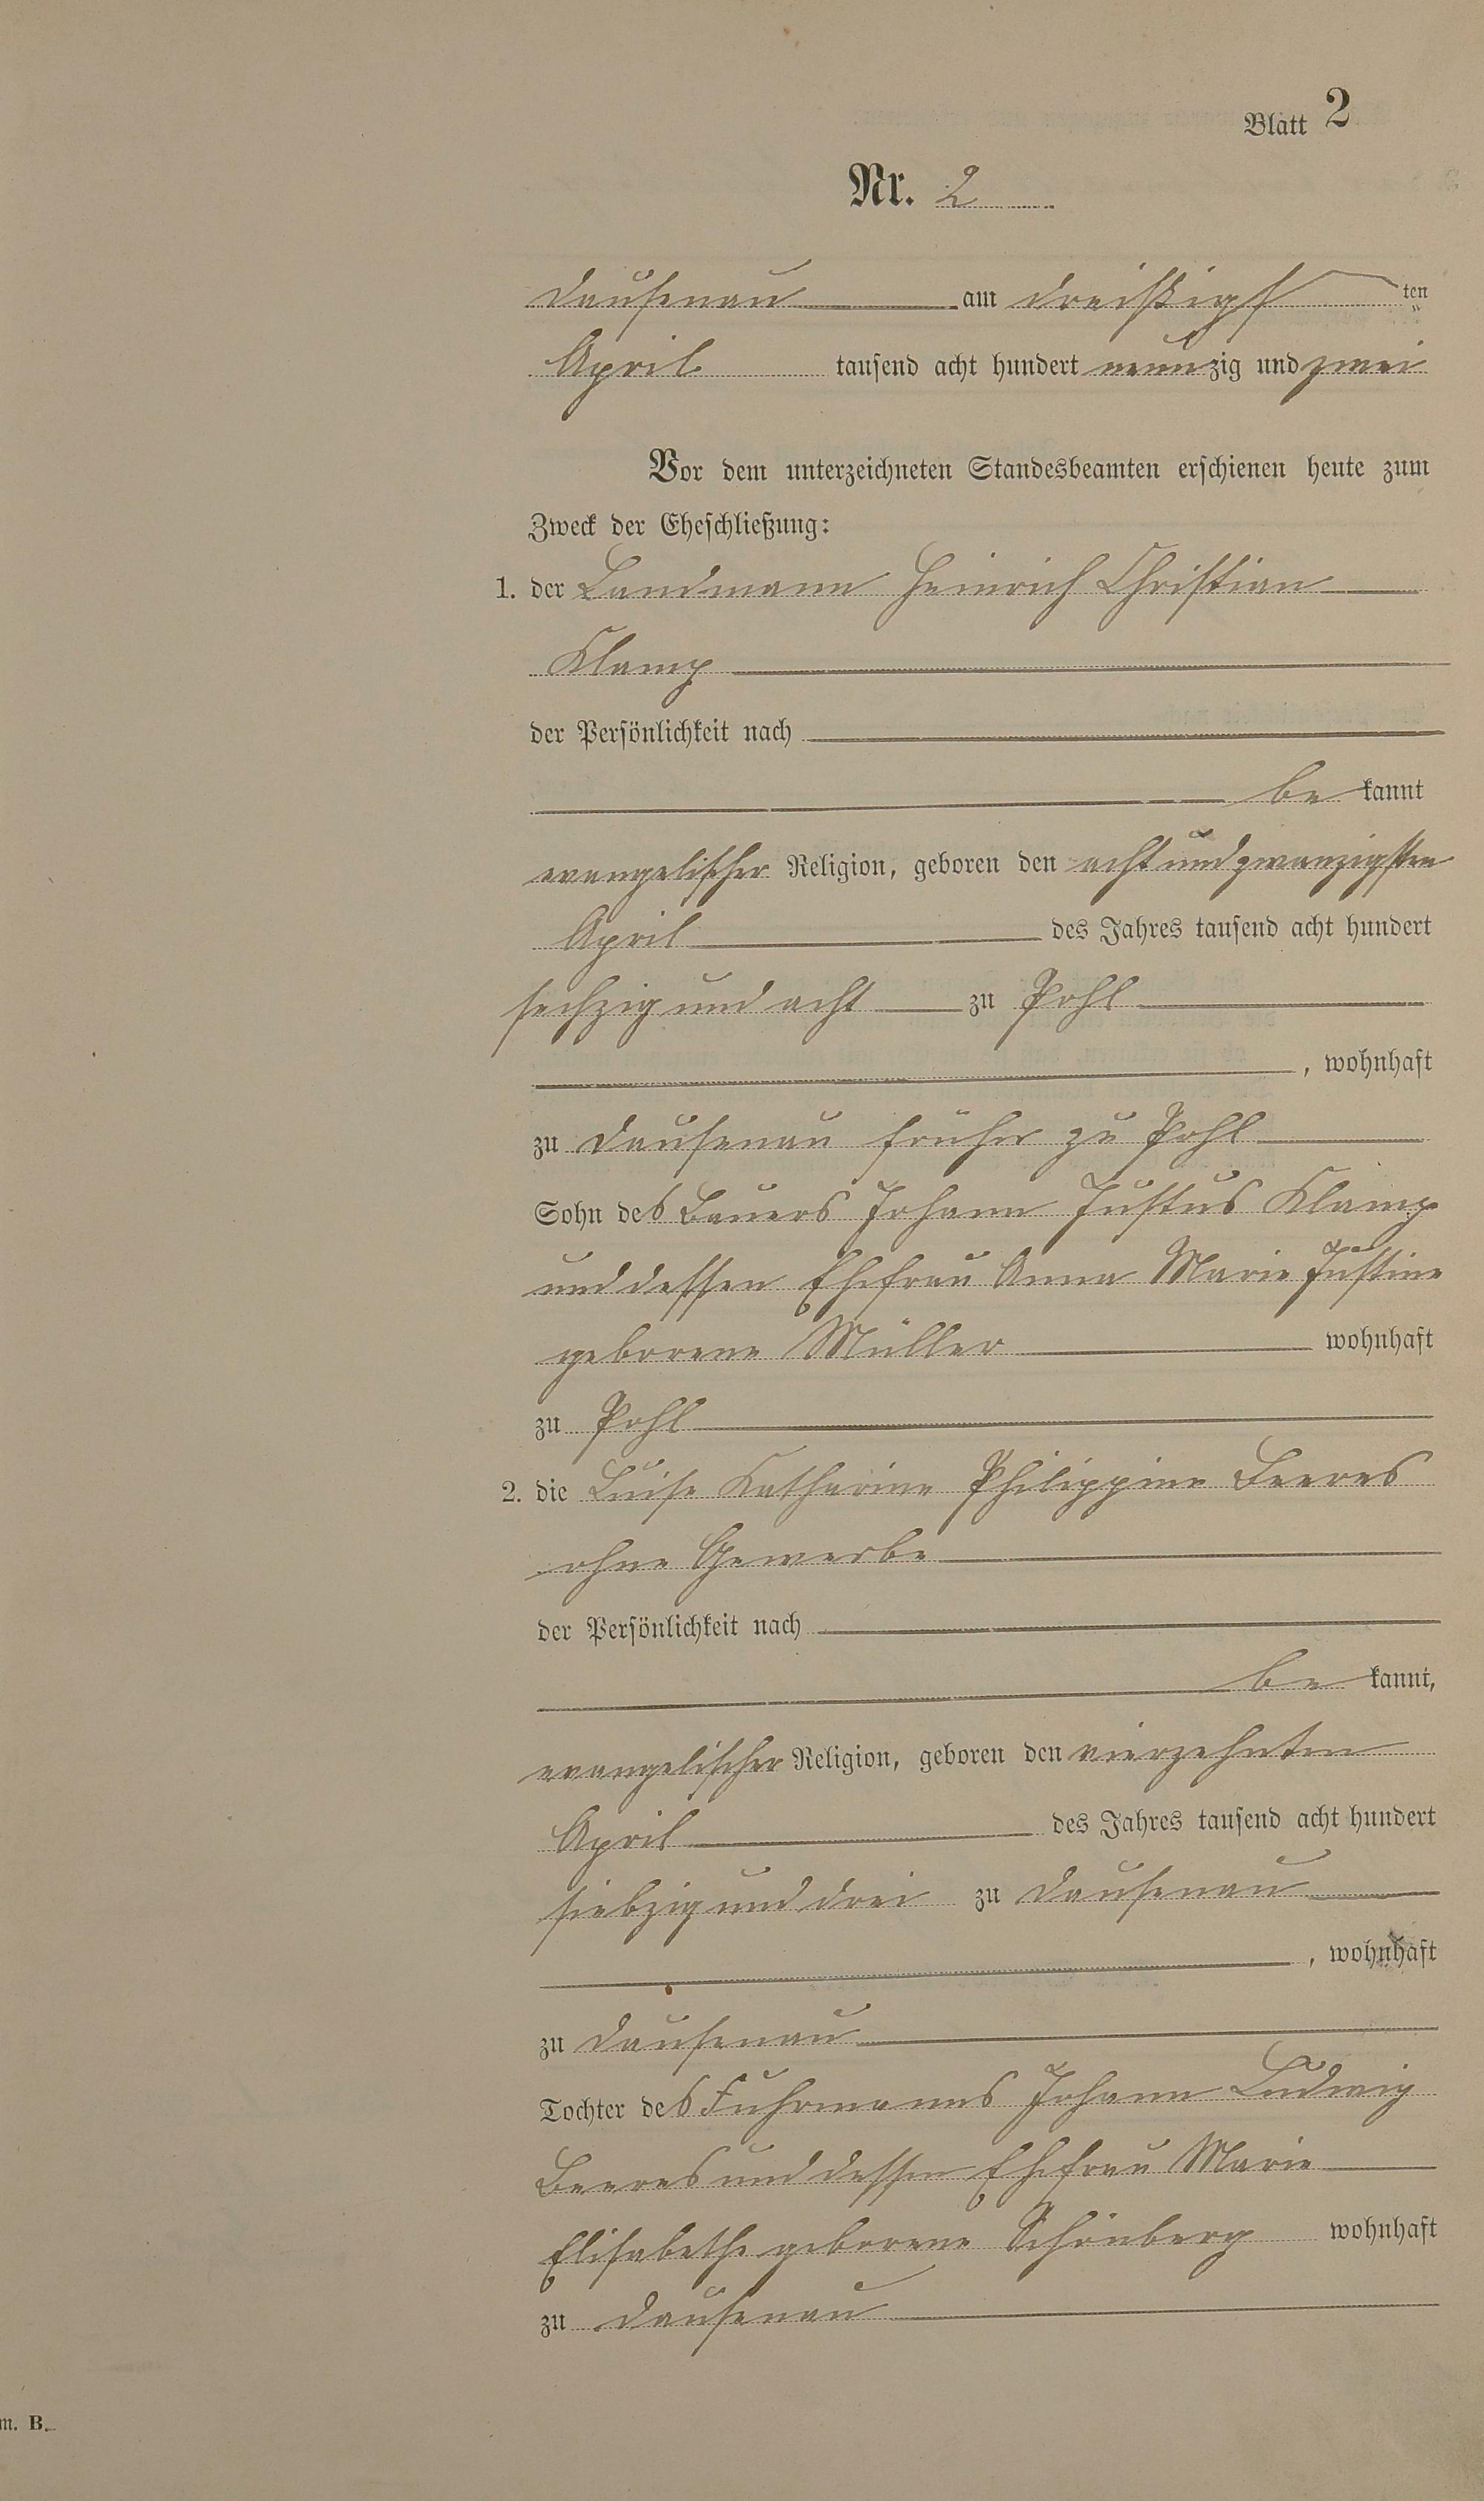 Blatt 2
Nr. 2
Dausenau am dreißigst ten
April tausend acht hundert neunzig und zwei
Vor dem unterzeichneten Standesbeamten erschienen heute zum
Zweck der Eheschließung:
1. der Landmann Heinrich Christian
Klamp
der Persönlichkeit nach
be kannt
evangelischer Religion, geboren den acht und zwanzigsten
April des Jahres tausend acht hundert
sechzig und acht zu Pohl
, wohnhaft
zu Dausenau früher zu Pohl
Sohn des Bauers Johann Justus Klamp
und dessen Ehefrau Anna Marie Justine
geborene Müller wohnhaft
zu Pohl
2. die Luise Katharine Philippine Beeres
ohne Gewerbe
der Persönlichkeit nach
be kannt,
evangelischer Religion, geboren den vierzehnten
April des Jahres tausend acht hundert
siebzig und drei zu Dausenau
, wohnhaft
zu Dausenau
Tochter des Fuhrmanns Johann Ludwig
Beeres und dessen Ehefrau Marie
Elisabethe geborene Schönberg wohnhaft
zu Dausenau
m. B.